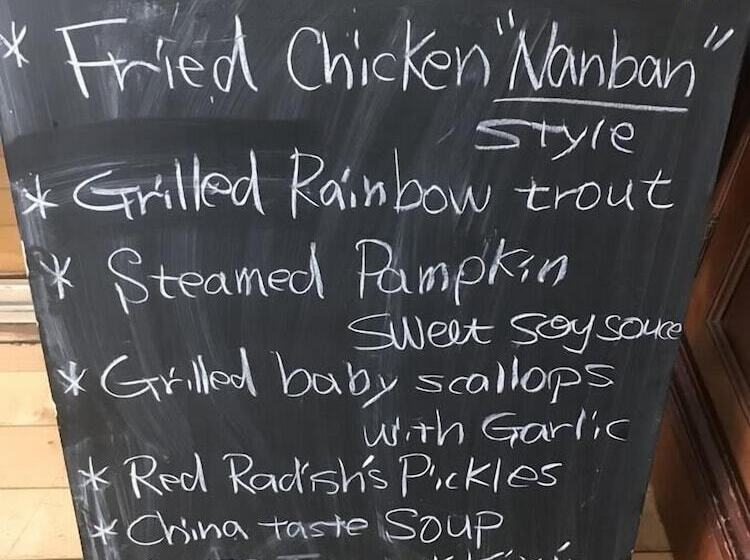 * Fried Chicken "Nanban"
style
* Grilled Rainbow trout
* Steamed Pampkin
sweet soy souce
* Grilled baby scallops
with Garlic
* Red Radish's Pickles
* China taste Soup